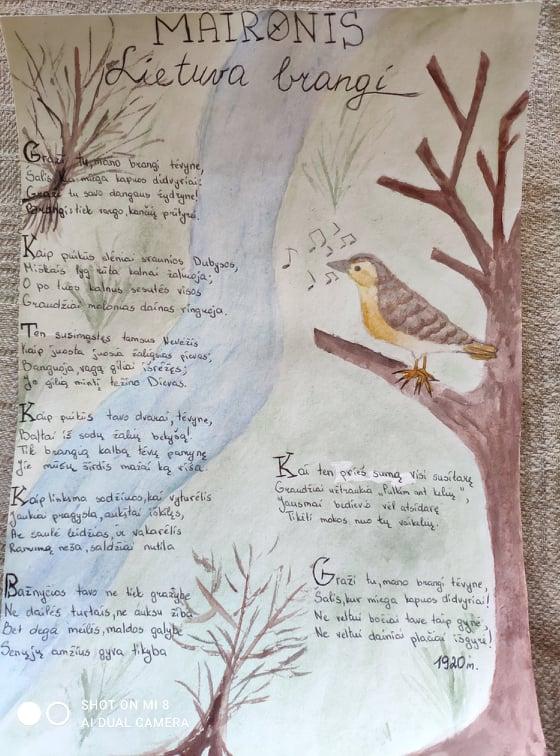 MAIRONIS
Lietuva brangi
Graži tu, mano brangi tėvyne,
Šalis, kur miega kapuos didvyriai:
Graži tu savo dangaus žydryne!
Brangi: tiek vargo, kančių prityrei.
Kaip puikūs slėniai sraunios Dubysos,
Miškais lyg rūta kalnai žaliuoja;
O po tuos kalnus sesutės visos
Graudžiai malonias dainas ringuoja.
Ten susimąstęs tamsus Nevėžis
Kaip juosta juosia žaliąsias pievas;
Banguoja, vagą giliai išrėžęs;
Jo gilią mintį težino Dievas.
Kaip puikūs tavo dvarai, tėvyne,
Baltai iš sodų žalių bekyšą!
Tik brangią kalbą tėvų pamynę
Jie mūsų širdis mažai ką riša.
Kaip linksma sodžiuos, kai vyturėlis
Jaukiai pragysta, aukštai iškilęs,
Ar saulė leidžias, ir vakarėlis
Ramumą neša, saldžiai nutila
Bažnyčios tavo ne tiek gražybe
Ne dailės turtais, ne auksu žiba
Bet dega meilės, maldos galybė
Senųjų amžius gyva tikyba
Kai ten prieš sumą visi susilaukę
Graudžiai užtraukia „Pulkim ant kelių",
Jausmai budievo vėl atsidarę
Tikėti mokos nuo tų vaikelių.
Graži tu, mano brangi tėvyne,
Šalis, kur miega kapuos didvyriai!
Ne veltui bočiai tave taip gynė,
Ne veltui dainiai plačiai išgyrė!
1920 m.
SHOT ON MI 8
AI DUAL CAMERA